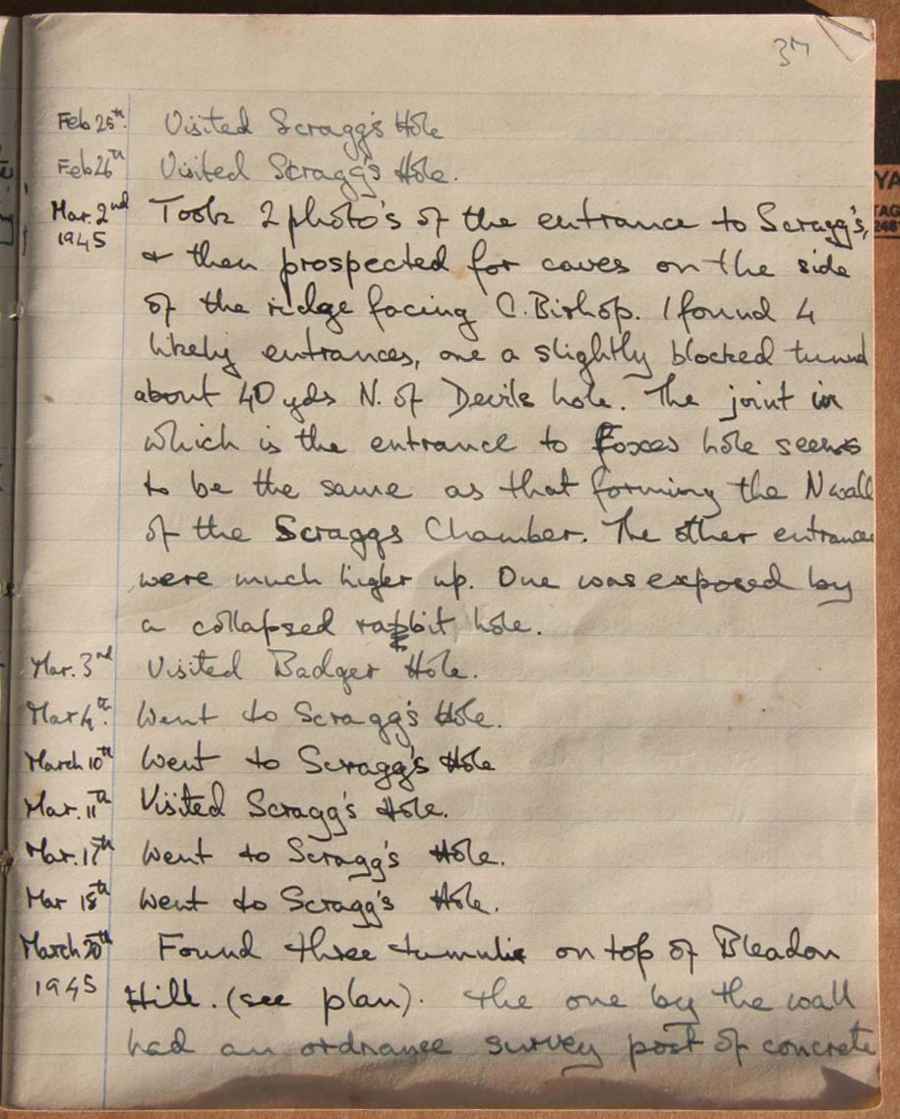 37
Feb 25th. Visited Scragg's Hole
Feb 26th Visited Scragg's Hole.
Mar. 2nd Took 2 photo's of the entrance to Scragg's,
1945 & then prospected for caves on the side
of the ridge facing C. Bishop. I found 4
likely entrances, one a slightly blocked tunnel
about 40 yds N. of Devils hole. The joint in
which is the entrance to Foxes hole seems
to be the same as that forming the N wall
of the Scraggs Chamber. The other entrances
were much higher up. One was exposed by
a collapsed rabbit hole.
Mar. 3rd Visited Badger Hole.
Mar 4th. Went to Scragg's Hole.
March 10th Went to Scragg's Hole
Mar. 11th Visited Scragg's Hole.
Mar. 17th Went to Scragg's Hole.
Mar 18th Went to Scragg's Hole.
March 20th Found three tumuli on top of Bleadon
1945 Hill. (see plan). The one by the wall
had an ordnance survey post of concrete
YA
TAG